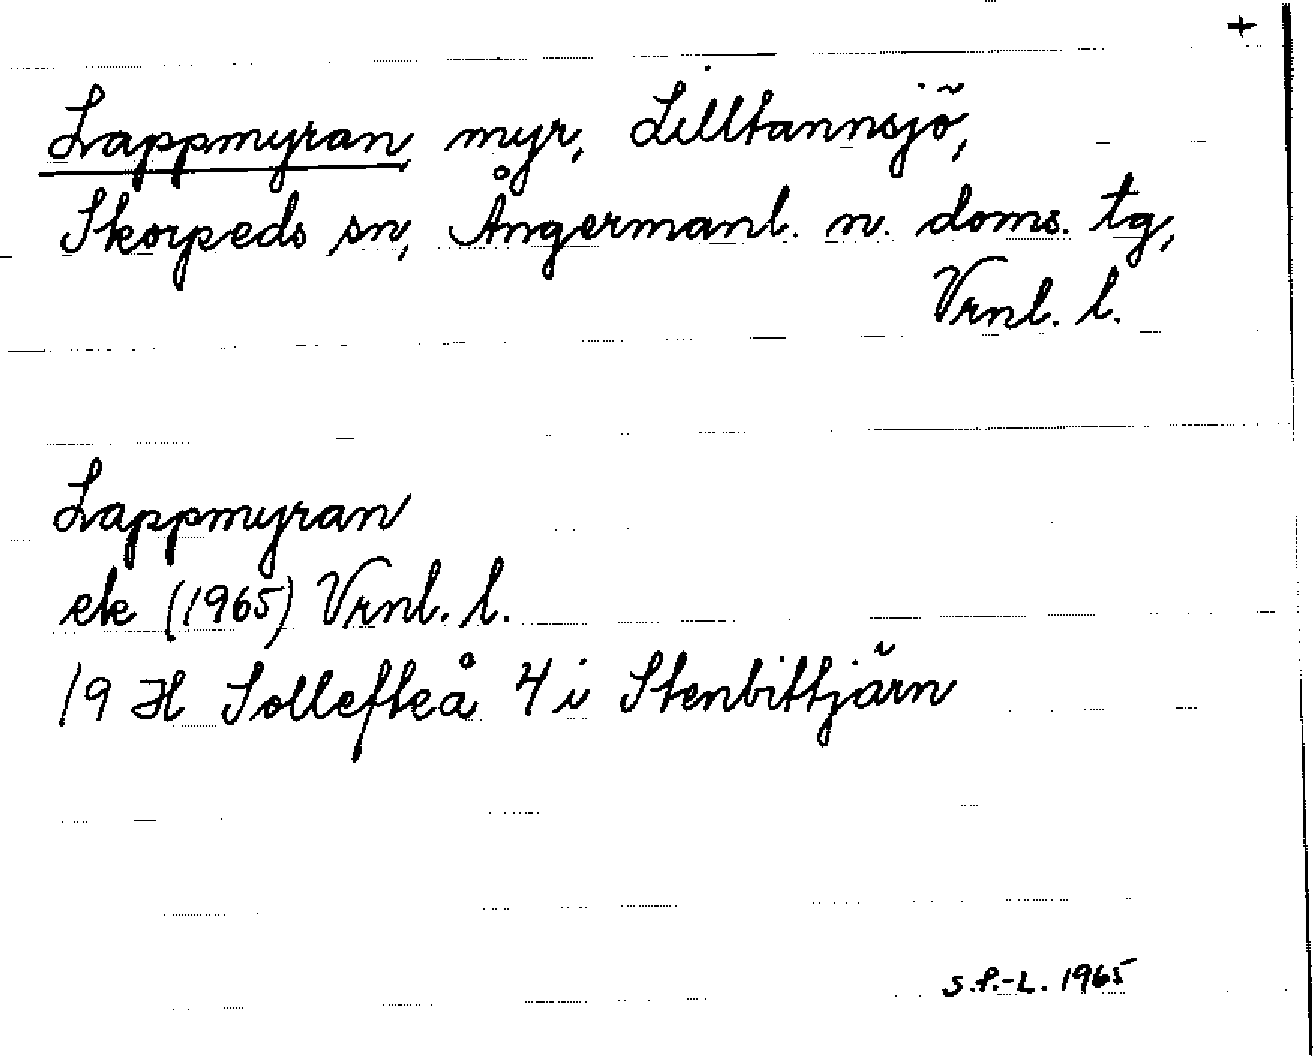 +
Lappmyran myr, Lilltannsjö,
Skorpeds sn, Ångermanl. n. doms. tg,
Vrnl. l.
Lappmyran
ek (1965) Vrnl. l.
19 H Sollefteå 4 i Stenbittjärn
S.P.-L. 1965